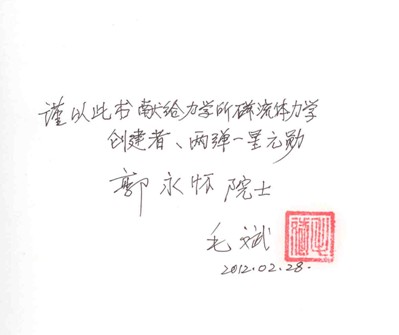 谨以此书献给力学所磁流体力学
创建者、两弹一星元勋
郭永怀院士
毛斌
2012.02.28.